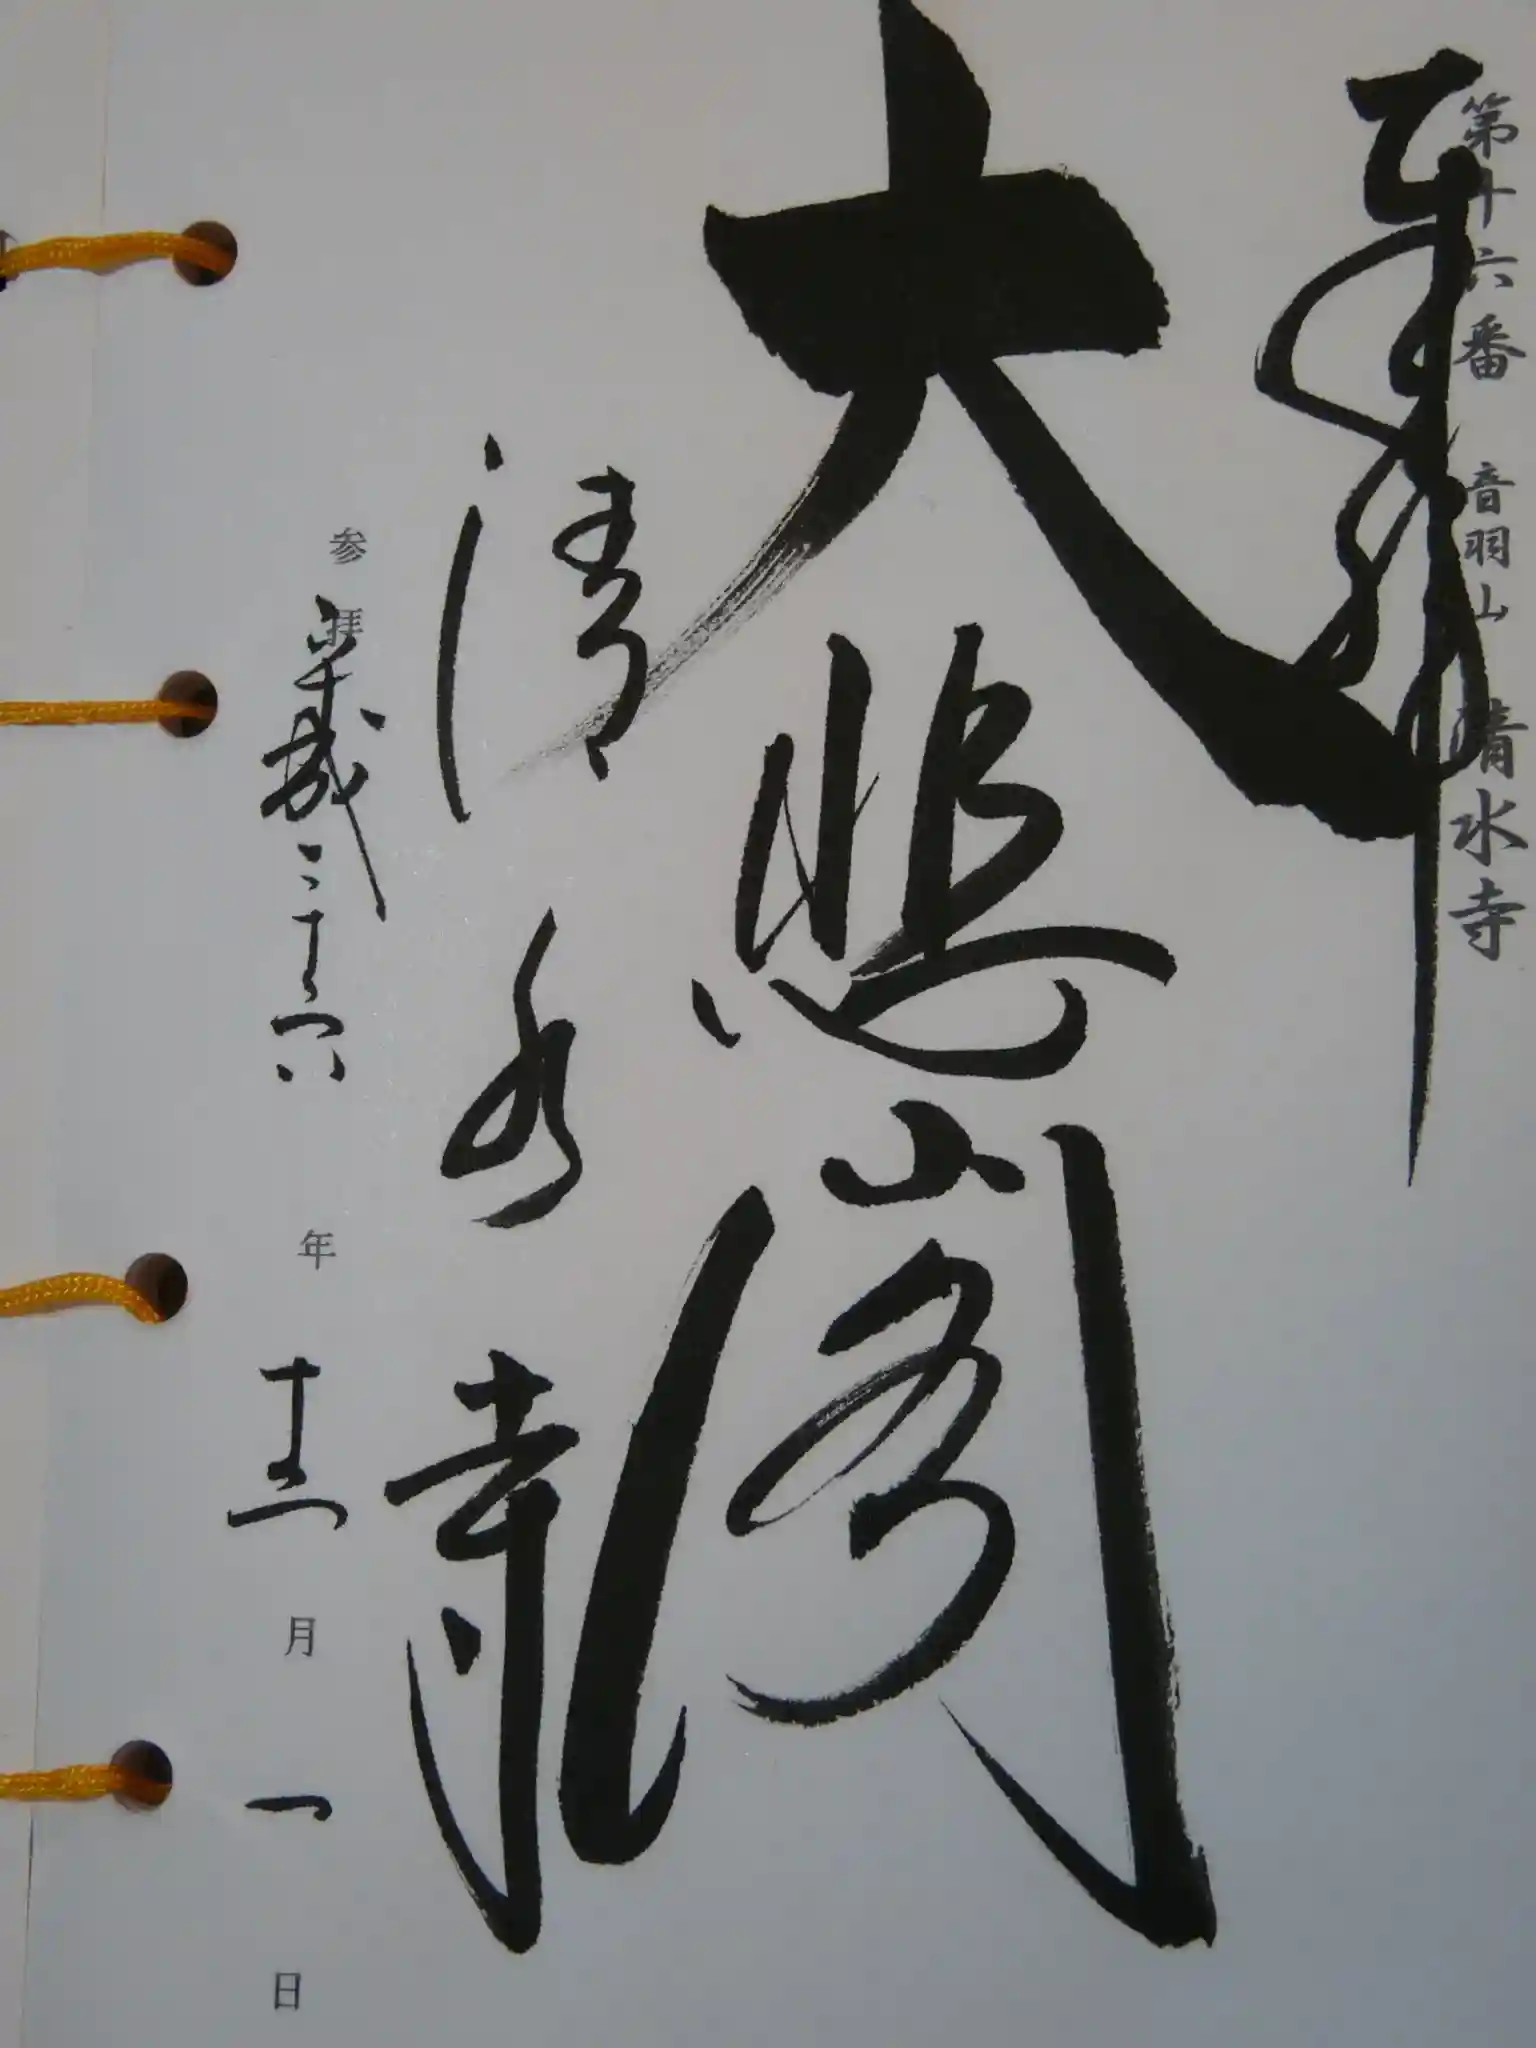 第十六番 音羽山 清水寺
奉拝
大悲閣
清水寺
参拝 平成二十六年十二月一日